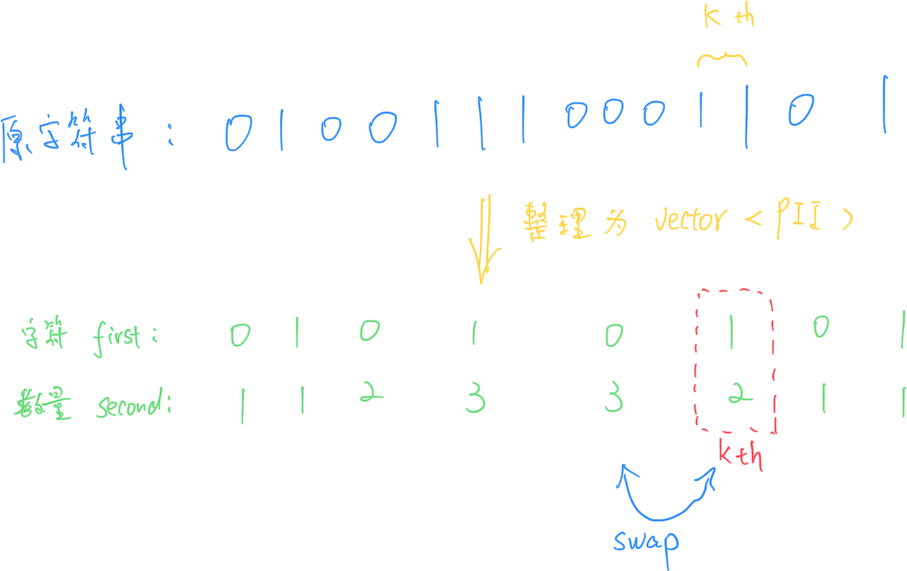 K th
原字符串： 0 1 0 0 1 1 1 0 0 0 1 1 0 1
整理为 vector < PII >
字符 first: 0 1 0 1 0 1 0 1
数量 second: 1 1 2 3 3 2 1 1
kth
swap